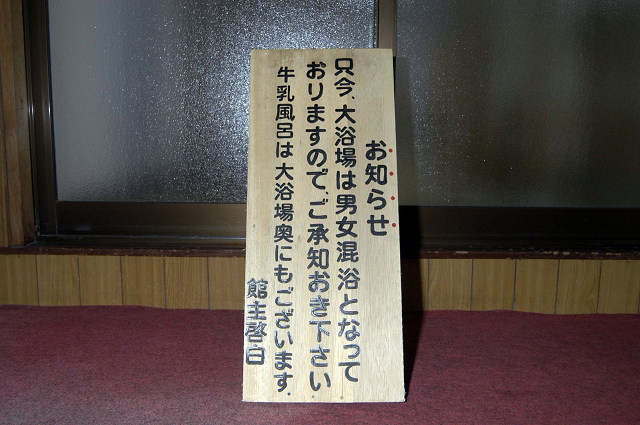 お知らせ
只今、大浴場は男女混浴となって
おりますので、ご承知おき下さい
牛乳風呂は大浴場奥にもございます.
館主啓白